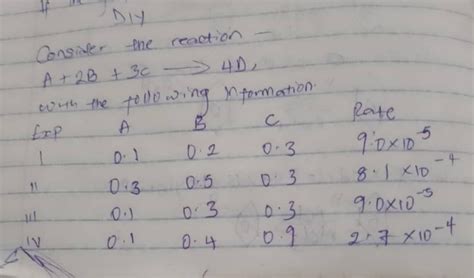 DIY
Consider the reaction –
A + 2B + 3C → 4D,
with the following information.
Exp A B C Rate
I 0.1 0.2 0.3 9.0×10⁻⁵
II 0.3 0.5 0.3 8.1×10⁻⁴
III 0.1 0.3 0.3 9.0×10⁻⁵
IV 0.1 0.4 0.9 2.7×10⁻⁴